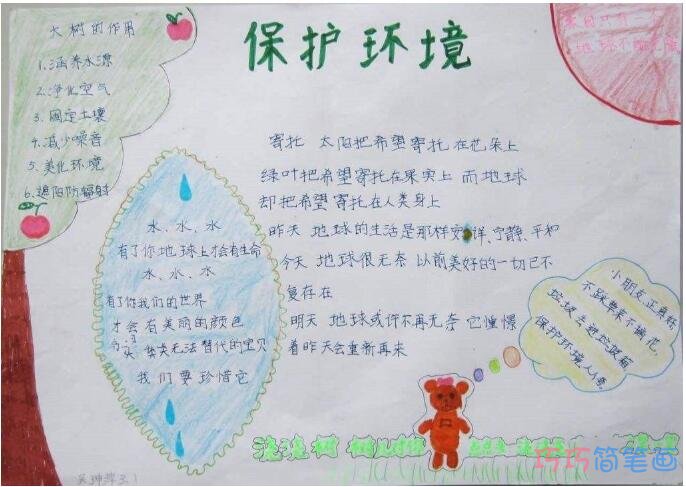 保护环境
大树的作用
1.涵养水源
2.净化空气
3.固定土壤
4.减少噪音
5.美化环境
6.遮阳防辐射
家园只有一个
地球不能克隆
水、水、水
有了你地球上才会有生命
水、水、水
有了你我们的世界
才会有美丽的颜色
类无法替代的宝贝
我们要珍惜它
寄托 太阳把希望寄托在花朵上
绿叶把希望寄托在果实上 而地球
却把希望寄托在人类身上
昨天 地球的生活是那样安详、宁静、平和
今天 地球很无奈 以前美好的一切已不
复存在
明天 地球或许不再无奈 它憧憬
着昨天会重新再来
小朋友正真好
不踩苹果不摘花,
垃圾丢进垃圾箱
保护环境人人
浇浇树 树儿对你 点点头
巧巧简笔画